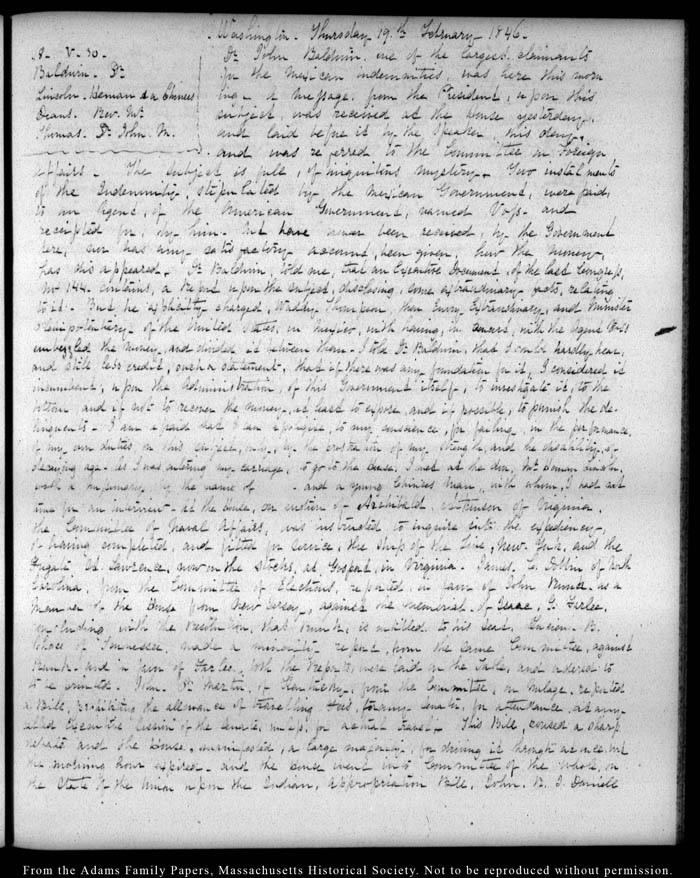 Washington. Thursday 19th February 1846.
18. V. 30.
Baldwin. Dr
Lincoln. Heman & a Chinese
Deans. Rev. Mr
Thomas. Dr John. M.
Dr John Baldwin, one of the largest claimants
for the Mexican indemnities, was here this morn
ing. A Message from the President, upon this
subject was received at the house yesterday,
and laid before it by the Speaker this day,
and was referred to the Committee on Foreign
Affairs. The subject is full, of iniquitous mystery. Two instalments
of the Indemnity, stipulated by the Mexican Government, were paid,
to an Agent, of the American Government, named Voss and
receipted for, by him. but have never been received, by the Government
here, nor has any satisfactory account, been given, how the money,
has disappeared. Dr Baldwin, told me, that an Executive document, of the last Congress,
No 144. contains, a Report upon the subject, disclosing, some extraordinary facts, relating
to it. But he explicitly charged, Waddy Thompson, then Envoy Extraordinary, and Minister
Plenipotentiary of the United States, in Mexico, with having, in concert, with the Agent Voss
embezzled the money, and divided it between them. I told Dr Baldwin, that I could hardly hear,
and still less credit, such a statement, that if there was any foundation for it, I considered it
incumbent, upon the Administration, of this Government itself, to investigate it, to the
bottom and if not to recover the money, at least to expose, and if possible, to punish the de-
linquents. I am afraid that I can apologize, to my conscience, for failing, in the performance
of my own duties on this subject, only, by the prostration of my strength, and the disability, of
decaying age. As I was entering my carriage, to go to the house, I met at the door, Mr Heman Lincoln,
with a missionary by the name of and a young Chinese man, with whom, I had not
time for an interview. At the house, on motion of Archibald Atkinson of Virginia,
the Committee of Naval Affairs, was instructed to enquire into the expediency,
of having completed, and fitted for service, the ship of the Line, New-York, and the
frigate St. Lawrence, now on the stocks, at Gosport, in Virginia. James, C. Dobbin of North
Carolina, from the Committee of Elections, reported, in favor of John Runk. as a
Member of the house from New Jersey, against the memorial of Isaac, G. Farlee,
concluding, with the resolution, that Runk, is entitled to his seat. Lucien. B.
Chase of Tennessee, made a minority report, from the same Committee, against
Runk. and in favor of Farlee. both the Reports, were laid on the Table, and ordered to
to be printed. John. P. Martin, of Kentucky, from the Committee, on Mileage, reported
a Bill, prohibiting the allowance of travelling fees, to any Senator, for attendance, at any
called Executive Session of the Senate, unless, for actual travel. This Bill, caused a sharp
debate and the house, manifested, a large majority, for driving it through at once, but
the morning hour expired. and the house went into Committee of the whole, on
the State of the Union upon the Indian, Appropriation Bill, John. R. J. Daniell
From the Adams Family Papers, Massachusetts Historical Society. Not to be reproduced without permission.